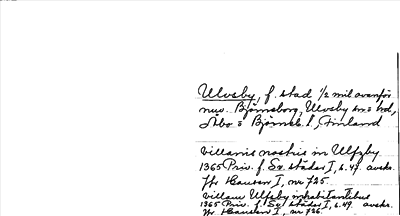 Ulvsby, f. stad 1/2 mil ovanför
nuv. Björneborg, Ulvsby sn = hd,
Åbo = Björneb. l., Finland
villanis nostris in Ulfzby
1365 Priv. f. Sv. städer I, s. 47. avskr.
Jfr Hausen I, nr 725.
villam Ulfzby inhabitantibus
1365 Priv. f. Sv. städer I, s. 49. avskr.
Jfr Hausen I, nr 726.